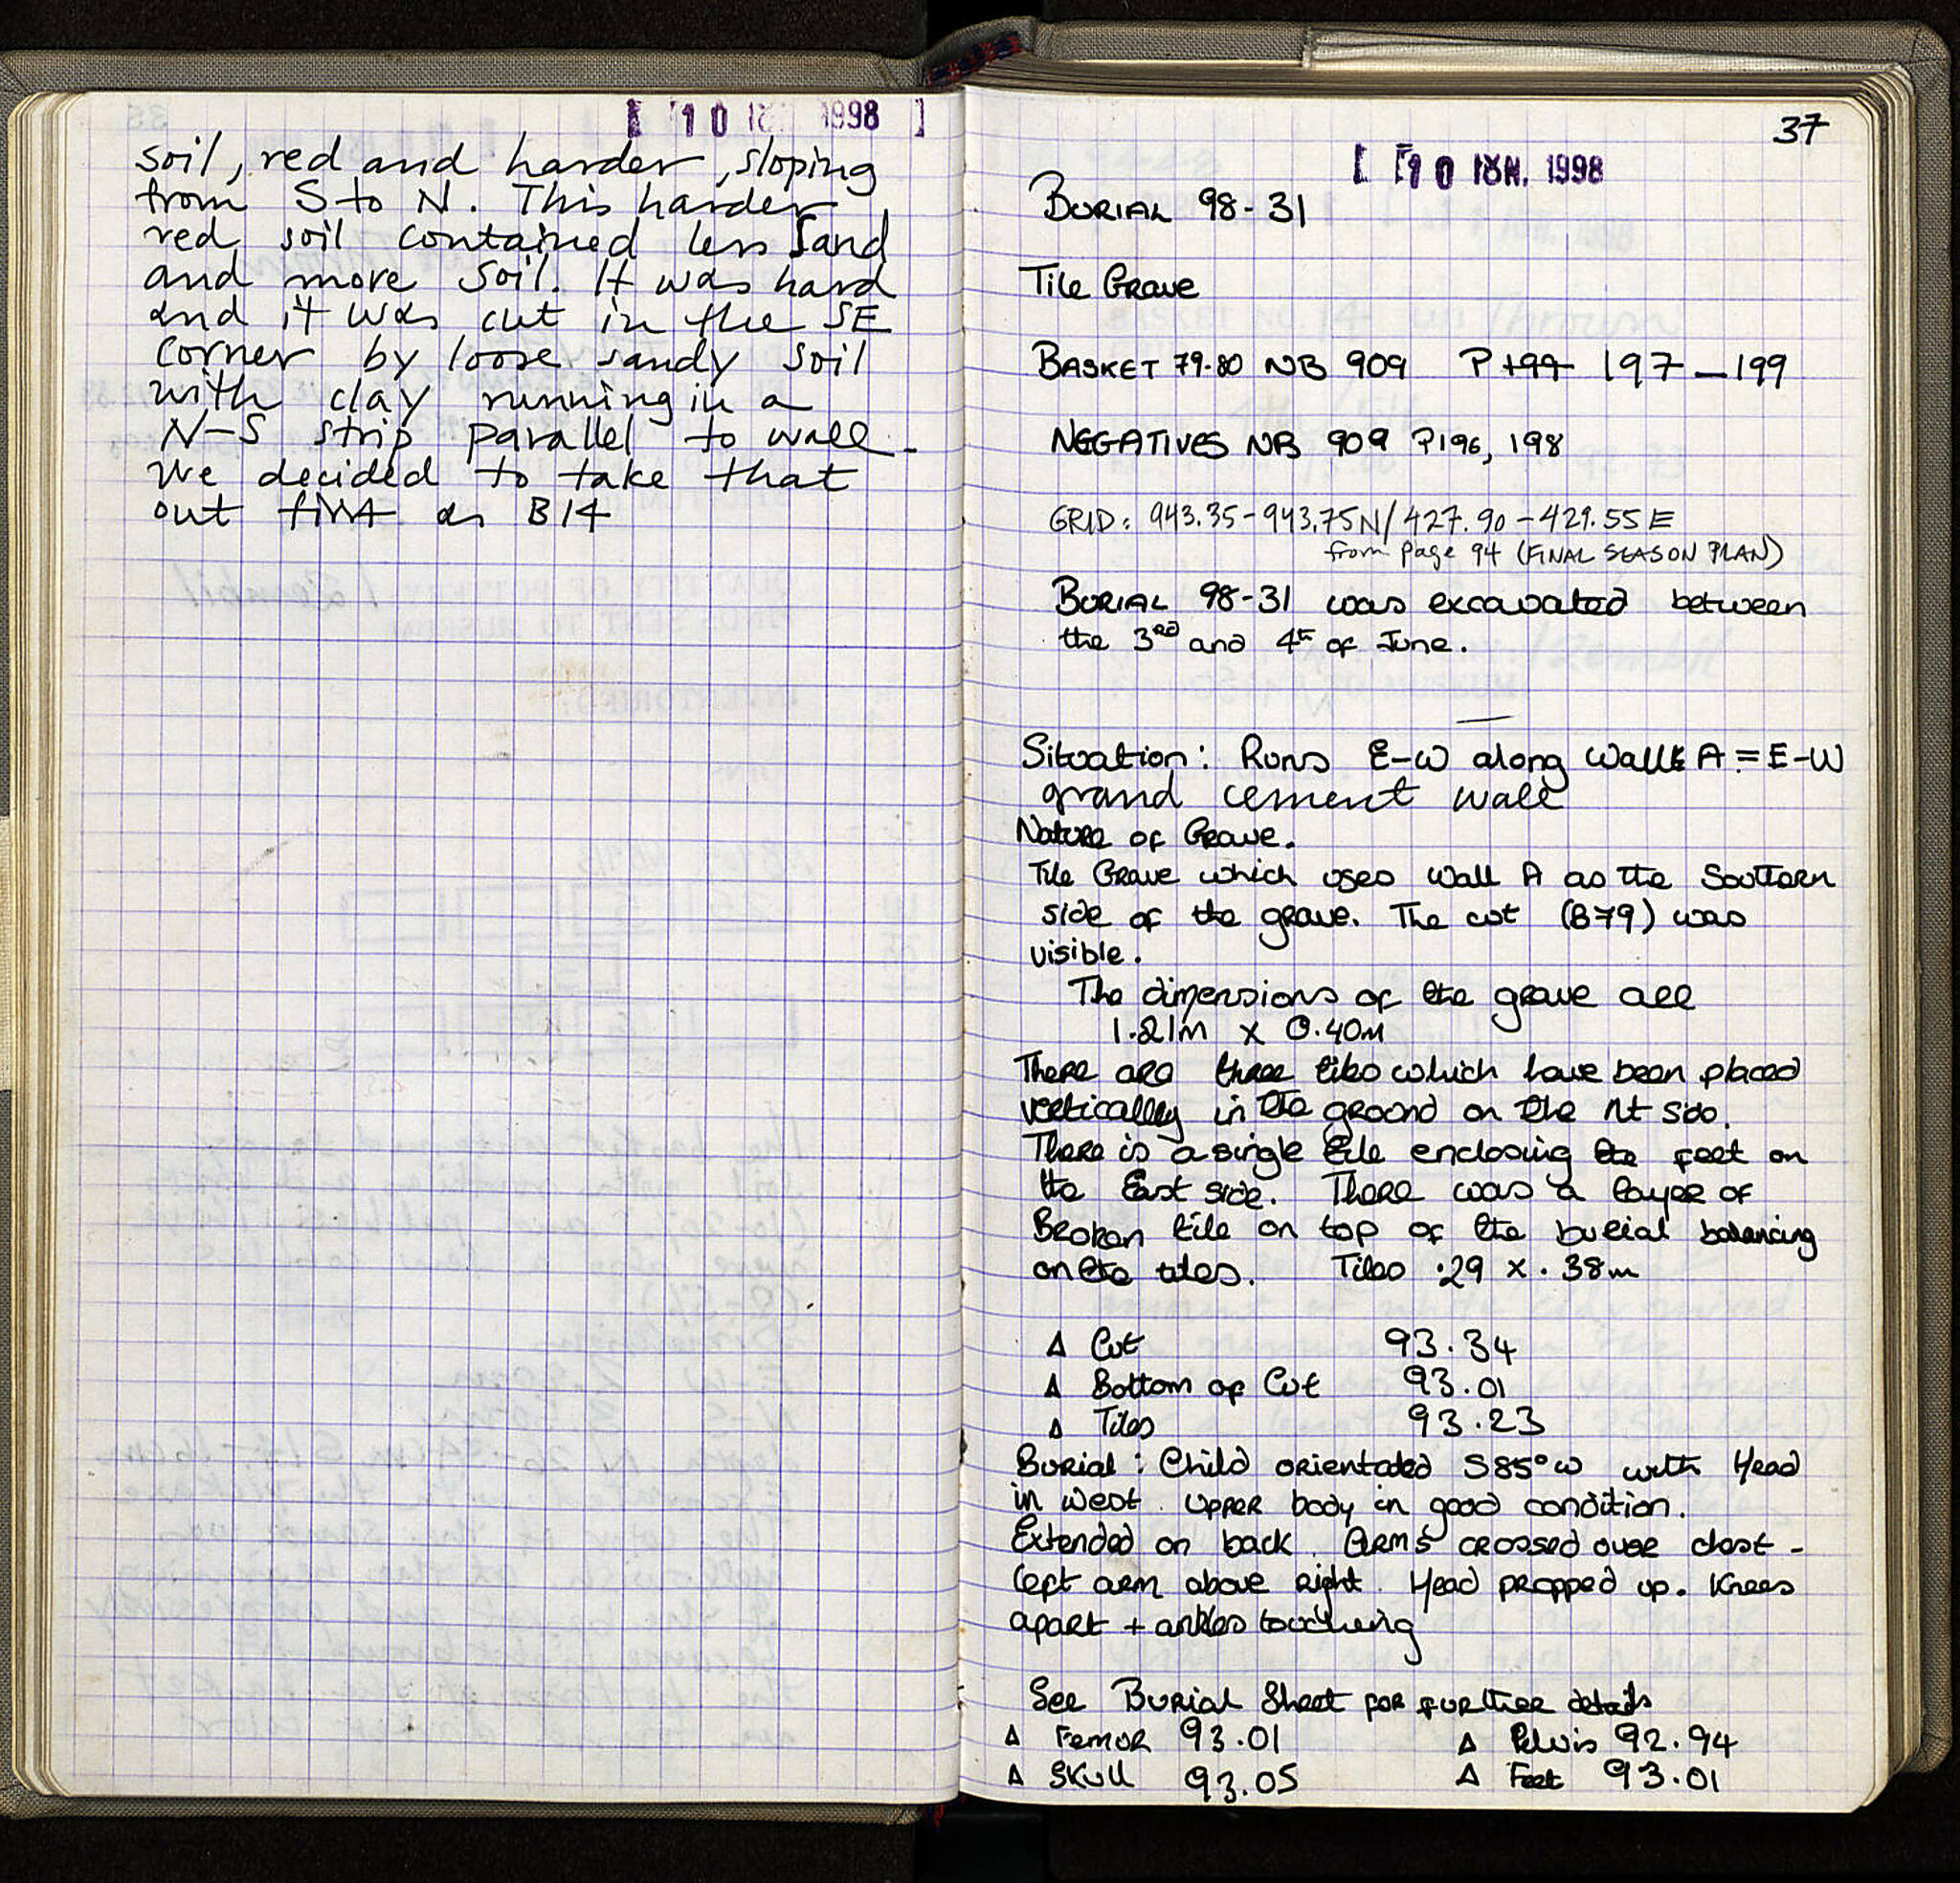 [ 10 ΙΟΥ. 1998 ]
soil, red and harder, sloping
from S to N. This harder
red soil contained less sand
and more soil. It was hard
and it was cut in the SE
corner by loose sandy soil
with clay running in a
N-S strip parallel to wall.
We decided to take that
out first as B14
37
[ 10 ΙΟΥΝ. 1998
BURIAL 98-31
Tile Grave
BASKET 79-80 NB 909 P 199 197-199
NEGATIVES NB 909 P196, 198
GRID: 943.35-943.75N/427.90-429.55E
from page 94 (FINAL SEASON PLAN)
BURIAL 98-31 was excavated between
the 3RD and 4th of June.
Situation: Runs E-W along Wall A = E-W
grand cement wall
Nature of Grave.
Tile Grave which uses wall A as the Southern
side of the grave. The cut (B79) was
visible.
The dimensions of the grave are
1.21m x 0.40m
There are three tiles which have been placed
vertically in the ground on the Nt side.
There is a single tile enclosing the feet on
the East side. There was a layer of
Broken tile on top of the burial balancing
on the tiles. Tiles .29 x .38m
Δ Cut 93.34
Δ Bottom of Cut 93.01
Δ Tiles 93.23
Burial: Child orientated S85°W with Head
in West. Upper body in good condition.
Extended on back. Arms crossed over chest -
left arm above right. Head propped up. Knees
apart + ankles touching
See Burial Sheet for further details
Δ Femur 93.01 Δ Pelvis 92.94
Δ Skull 93.05 Δ Feet 93.01